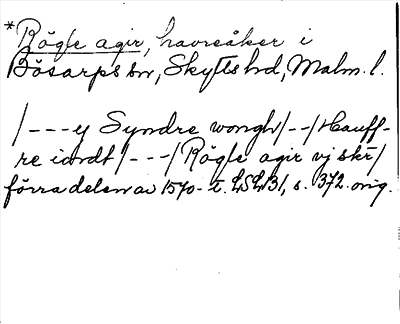 *Rögle agir, havreåker i
Bösarps sn, Skytts hd, Malm. l.
/---ej Syndre wongh/--/Hauff-
re iordt/---/Rögle agir vj skr/
förra delen av 1570-t. LSLB1, s. 372. orig.